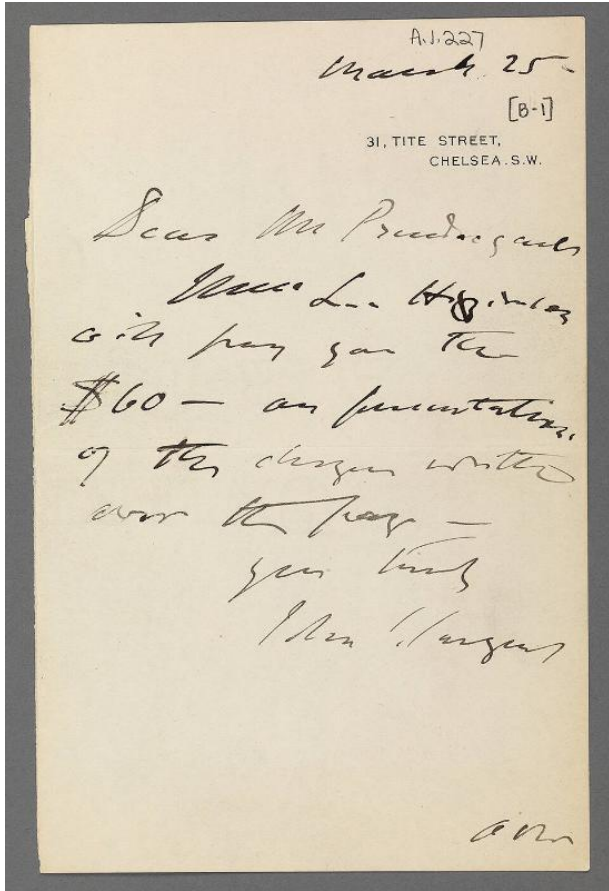 A.J.227
March 25 -
[B-1]
31, TITE STREET,
CHELSEA. S.W.
Dear Mr
Lee Higginson
will pay you the
$60 — on presentation
of the cheque written
over the page —
yours truly
John Sargent
over